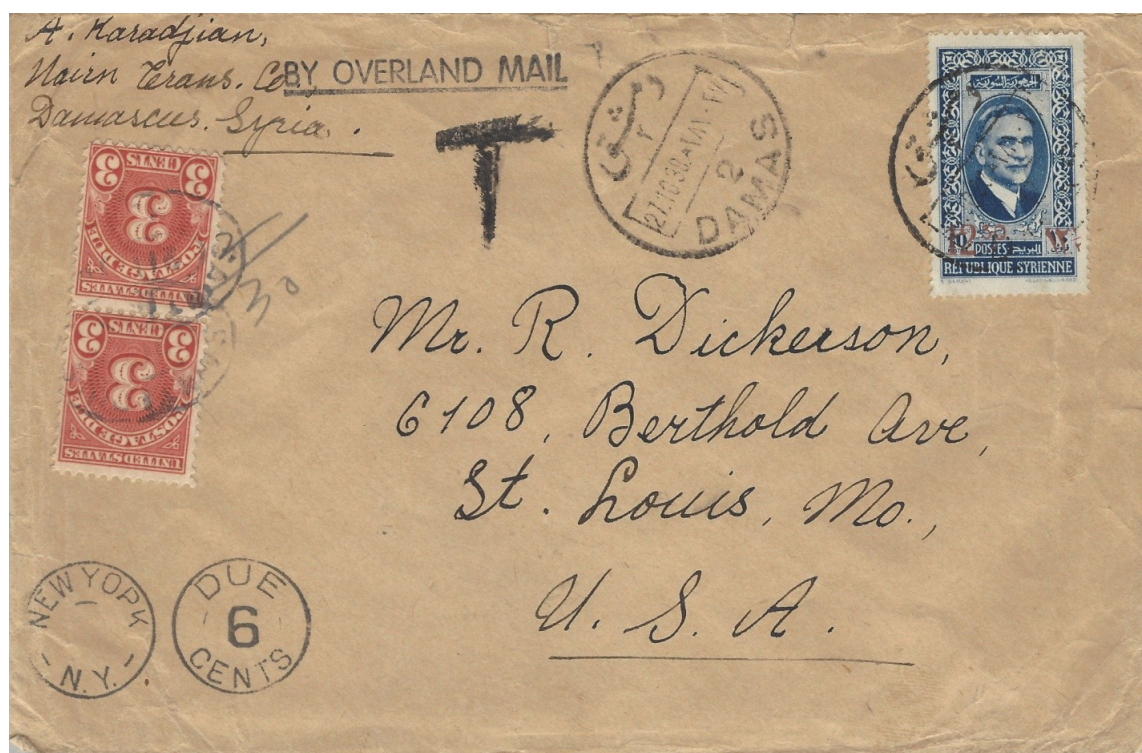 A. Karadjian,
Nairn Trans. Co.,
Damascus. Syria.
BY OVERLAND MAIL
T
دمشق
٢
2
DAMAS
12 50
POSTES البريد
REPUBLIQUE SYRIENNE
3 3
CENTS
3
POSTAGE DUE
UNITED STATES
3 3
CENTS
3
POSTAGE DUE
UNITED STATES
Mr. R. Dickerson,
6108, Berthold Ave,
St. Louis, Mo.,
U. S. A.
NEW YORK
N.Y.
DUE
6
CENTS